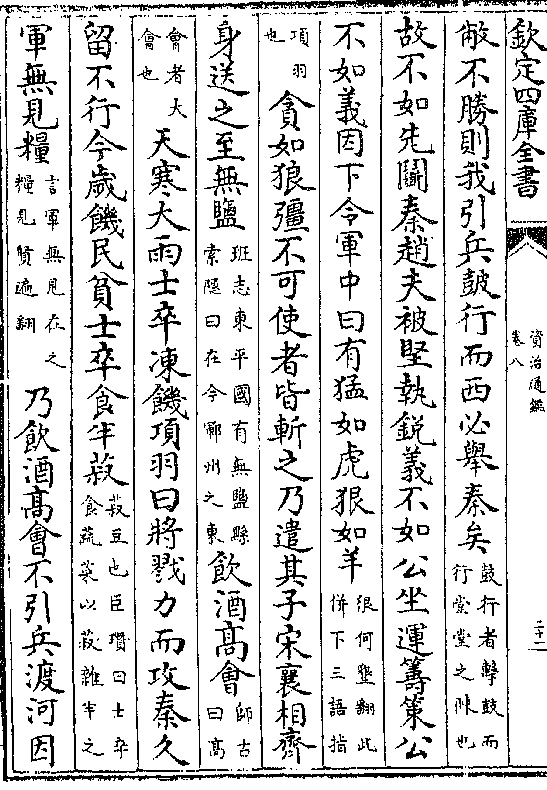 欽定四庫全書
資治通鑑
卷八
敝不勝則我引兵鼓行而西必舉秦矣鼓行者擊鼓而行堂堂之陣也
故不如先鬭秦趙夫被堅執鋭義不如公坐運籌策公
不如義因下令軍中曰有猛如虎狠如羊很何墾翻此倂下三語指
項羽也貪如狼彊不可使者皆斬之乃遣其子宋襄相齊
身送之至無鹽班志東平國有無鹽縣索隱曰在今鄆州之東飲酒髙會師古曰髙
會者大會也天寒大雨士卒凍饑項羽曰將戮力而攻秦久
留不行今歲饑民貧士卒食半菽菽豆也臣瓚曰士卒食蔬菜以菽雜半之
軍無見糧言軍無見在之糧見賢遍翻乃飲酒髙會不引兵渡河因